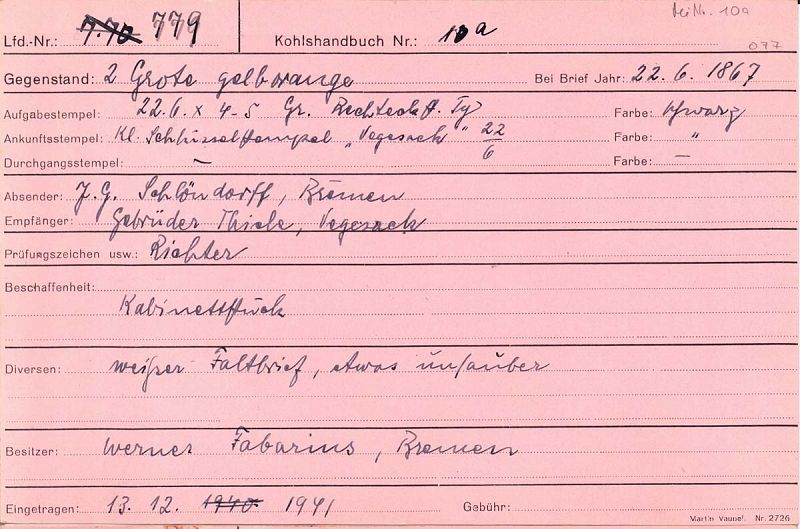 bei Nr. 10a
Lfd.-Nr.: 7.70 779 Kohlshandbuch Nr.: 10a
077
Gegenstand: 2 Grote gelborange Bei Brief Jahr: 22.6.1867
Aufgabestempel: 22.6. x 4-5 Gr. Rechteckst. Farbe: schwarz
Ankunftsstempel: Kl. Schlüsselstempel „Vegesack" 22/6 Farbe: "
Durchgangsstempel: — Farbe: —
Absender: J.G. Schlöndorff, Bremen
Empfänger: Gebrüder Thiele, Vegesack
Prüfungszeichen usw.: Richter
Beschaffenheit:
Kabinettstück
Diversen: weißer Faltbrief, etwas unsauber
Besitzer: Werner Fabarius, Bremen
Eingetragen: 13. 12. 1940. 1941 Gebühr:
Martin Vaupel. Nr. 2726